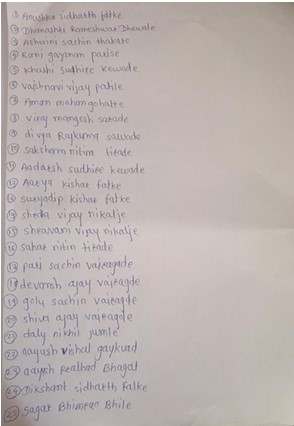 ① Anushka sidharth fatke
② Dhimashri Rameshwar Dhewale
③ Ashwini sachin thakare
④ Roni gajanan parise
⑤ khushi sudhire kewade
⑥ vaishnavi vijay patile
⑦ Aman mahan
⑧ viraj mangesh sarade
⑨ divya Rajkumar sawade
⑩ saksham nitin tirade
⑪ Aadarsh sudhire kewade
⑫ Aarya kishar fatke
⑬ suryadip kishar fatke
⑭ vijay nikalje
⑮ shravani vijay nikalje
⑯ sahar nitin tirade
⑰ pari sachin vairagade
⑱ devansh ajay vairagde
⑲ golu sachin vairagde
⑳ shiva ajay vairagde
㉑ daly nikhil jumle
㉒ aayush vishal gaykwad
㉓ aayush Bhagat
㉔ Dikshant sidharth Fatke
㉕ Sagar Bhimrao Bhile